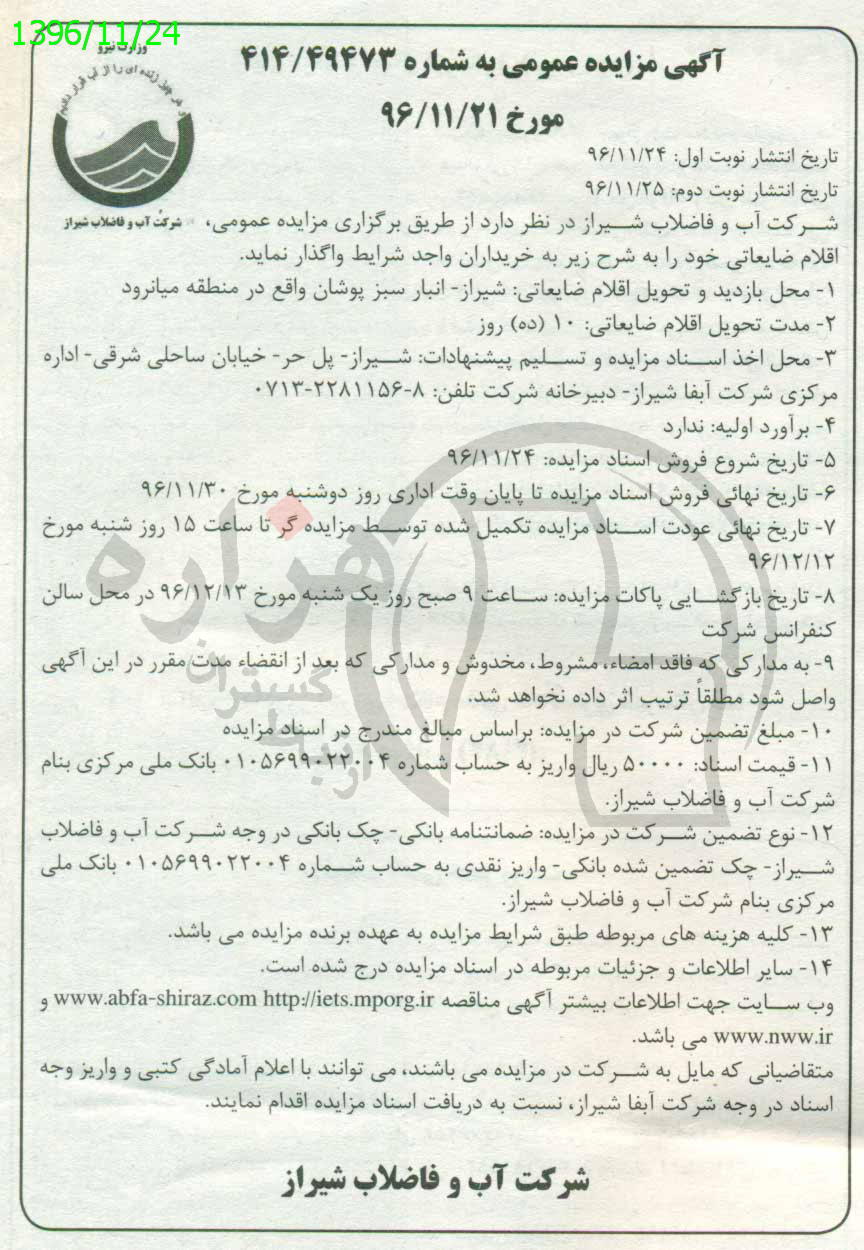 1396/11/24
وزارت نیرو
و هر چیز زنده ای را از آب قرار دادیم
شرکت آب و فاضلاب شیراز
آگهی مزایده عمومی به شماره ۴۱۴/۴۹۴۷۳
مورخ ۹۶/۱۱/۲۱
تاریخ انتشار نوبت اول: ۹۶/۱۱/۲۴
تاریخ انتشار نوبت دوم: ۹۶/۱۱/۲۵
شرکت آب و فاضلاب شیراز در نظر دارد از طریق برگزاری مزایده عمومی،
اقلام ضایعاتی خود را به شرح زیر به خریداران واجد شرایط واگذار نماید.
۱- محل بازدید و تحویل اقلام ضایعاتی: شیراز- انبار سبز پوشان واقع در منطقه میانرود
۲- مدت تحویل اقلام ضایعاتی: ۱۰ (ده) روز
۳- محل اخذ اسناد مزایده و تسلیم پیشنهادات: شیراز- پل حر- خیابان ساحلی شرقی- اداره
مرکزی شرکت آبفا شیراز- دبیرخانه شرکت تلفن: ۸-۲۲۸۱۱۵۶-۰۷۱۳
۴- برآورد اولیه: ندارد
۵- تاریخ شروع فروش اسناد مزایده: ۹۶/۱۱/۲۴
۶- تاریخ نهائی فروش اسناد مزایده تا پایان وقت اداری روز دوشنبه مورخ ۹۶/۱۱/۳۰
۷- تاریخ نهائی عودت اسناد مزایده تکمیل شده توسط مزایده گر تا ساعت ۱۵ روز شنبه مورخ
۹۶/۱۲/۱۲
۸- تاریخ بازگشایی پاکات مزایده: ساعت ۹ صبح روز یک شنبه مورخ ۹۶/۱۲/۱۳ در محل سالن
کنفرانس شرکت
۹- به مدارکی که فاقد امضاء، مشروط، مخدوش و مدارکی که بعد از انقضاء مدت مقرر در این آگهی
واصل شود مطلقاً ترتیب اثر داده نخواهد شد.
۱۰- مبلغ تضمین شرکت در مزایده: براساس مبالغ مندرج در اسناد مزایده
۱۱- قیمت اسناد: ۵۰۰۰۰ ریال واریز به حساب شماره ۰۱۰۵۶۹۹۰۲۲۰۰۴ بانک ملی مرکزی بنام
شرکت آب و فاضلاب شیراز.
۱۲- نوع تضمین شرکت در مزایده: ضمانتنامه بانکی- چک بانکی در وجه شرکت آب و فاضلاب
شیراز- چک تضمین شده بانکی- واریز نقدی به حساب شماره ۰۱۰۵۶۹۹۰۲۲۰۰۴ بانک ملی
مرکزی بنام شرکت آب و فاضلاب شیراز.
۱۳- کلیه هزینه های مربوطه طبق شرایط مزایده به عهده برنده مزایده می باشد.
۱۴- سایر اطلاعات و جزئیات مربوطه در اسناد مزایده درج شده است.
وب سایت جهت اطلاعات بیشتر آگهی مناقصه www.abfa-shiraz.com http://iets.mporg.ir و
www.nww.ir می باشد.
متقاضیانی که مایل به شرکت در مزایده می باشند، می توانند با اعلام آمادگی کتبی و واریز وجه
اسناد در وجه شرکت آبفا شیراز، نسبت به دریافت اسناد مزایده اقدام نمایند.
شرکت آب و فاضلاب شیراز
هزاره
گستران